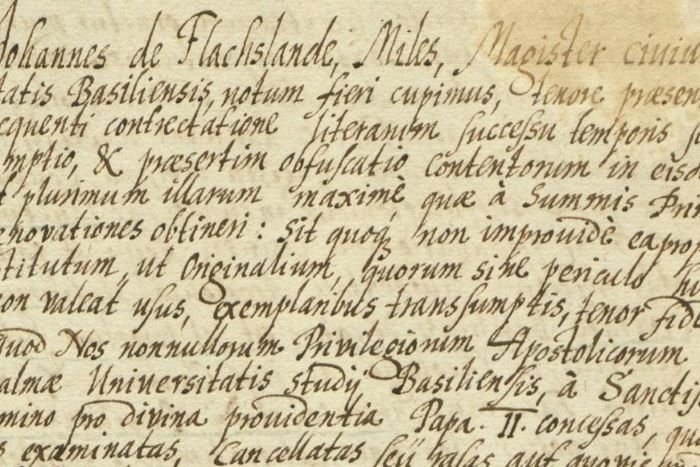 Johannes de Flachslande, Miles, Magister civium
tatis Basiliensis, notum fieri cupimus, tenore præsen
equenti contrectatione literarum successu temporis
mptio, & præsertim obfuscatio contentorum in eisd
t plurimum illarum maximè quæ à Summis Pri
enovationes obtineri: sit quoq, non improvidè ea pro
stitutum, ut Originalium, quorum sine periculo
on valeat usus, exemplaribus transsumptis, tenor fid
quod Nos nonnullorum Privilegiorum Apostolicorum
almæ Universitatis studij Basiliensis, à Sancti
mino pro divina providentia Papa. II. concessas, qu
s examinatas, Cancellatas seü rasas aut